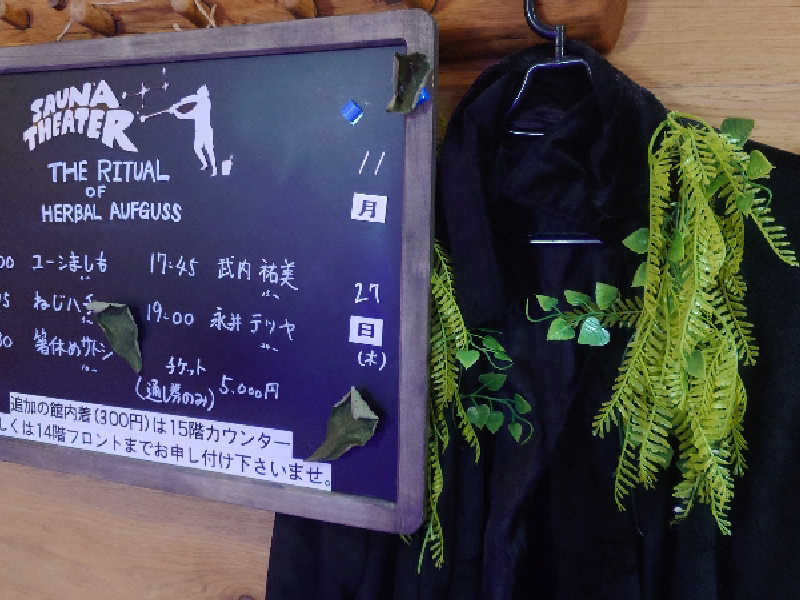 SAUNA
THEATER
THE RITUAL
OF
HERBAL AUFGUSS
11
月
27
日
(木)
00 ユーンましも
ねじハチ
箸休めサトシ
17:45 武内 祐美
19:00 永井 テツヤ
チケット
(通し券のみ) 5,000円
追加の館内着(300円)は15階カウンター
しくは14階フロントまでお申し付け下さいませ。